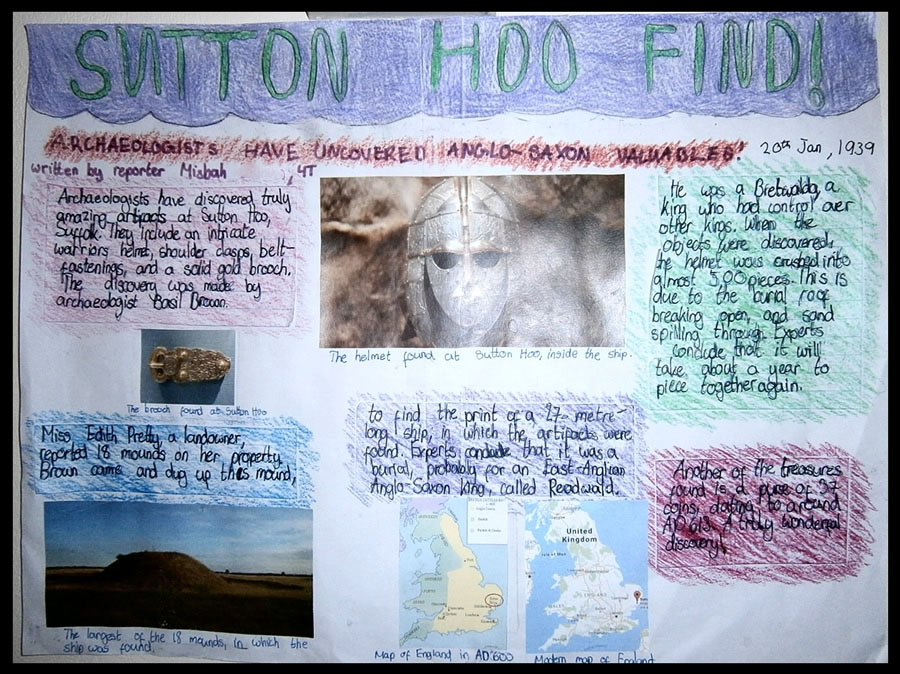 SUTTON HOO FIND!
ARCHAEOLOGISTS HAVE UNCOVERED ANGLO-SAXON VALUABLES!
20th Jan, 1939
written by reporter Misbah, 4T
Archaeologists have discovered truly
amazing artifacts at Sutton Hoo,
Suffolk. They include an intricate
warriors helmet, shoulder clasps, belt-
fastenings, and a solid gold brooch.
The discovery was made by
archaeologist Basil Brown.
The brooch found at Sutton Hoo
Miss Edith Pretty, a landowner,
reported 18 mounds on her property.
Brown came and dug up this mound,
The largest of the 18 mounds, in which the
ship was found.
The helmet found at Sutton Hoo, inside the ship.
to find the print of a 27-metre-
long ship, in which the artifacts were
found. Experts conclude that it was a
burial, probably for an East-Anglian
Anglo-Saxon King, called Readwald.
Map of England in AD'600
United
Kingdom
Isle of Man
ENGLAND
WALES
Modern map of England
He was a Bretwalda, a
king who had control over
other kings. When the
objects were discovered,
the helmet was crushed into
almost 500 pieces. This is
due to the burial roof
breaking open, and sand
spilling through. Experts
conclude that it will
take about a year to
piece together again.
Another of the treasures
found is a purse of 37
coins, dating to around
AD 613. A truly wonderful
discovery!